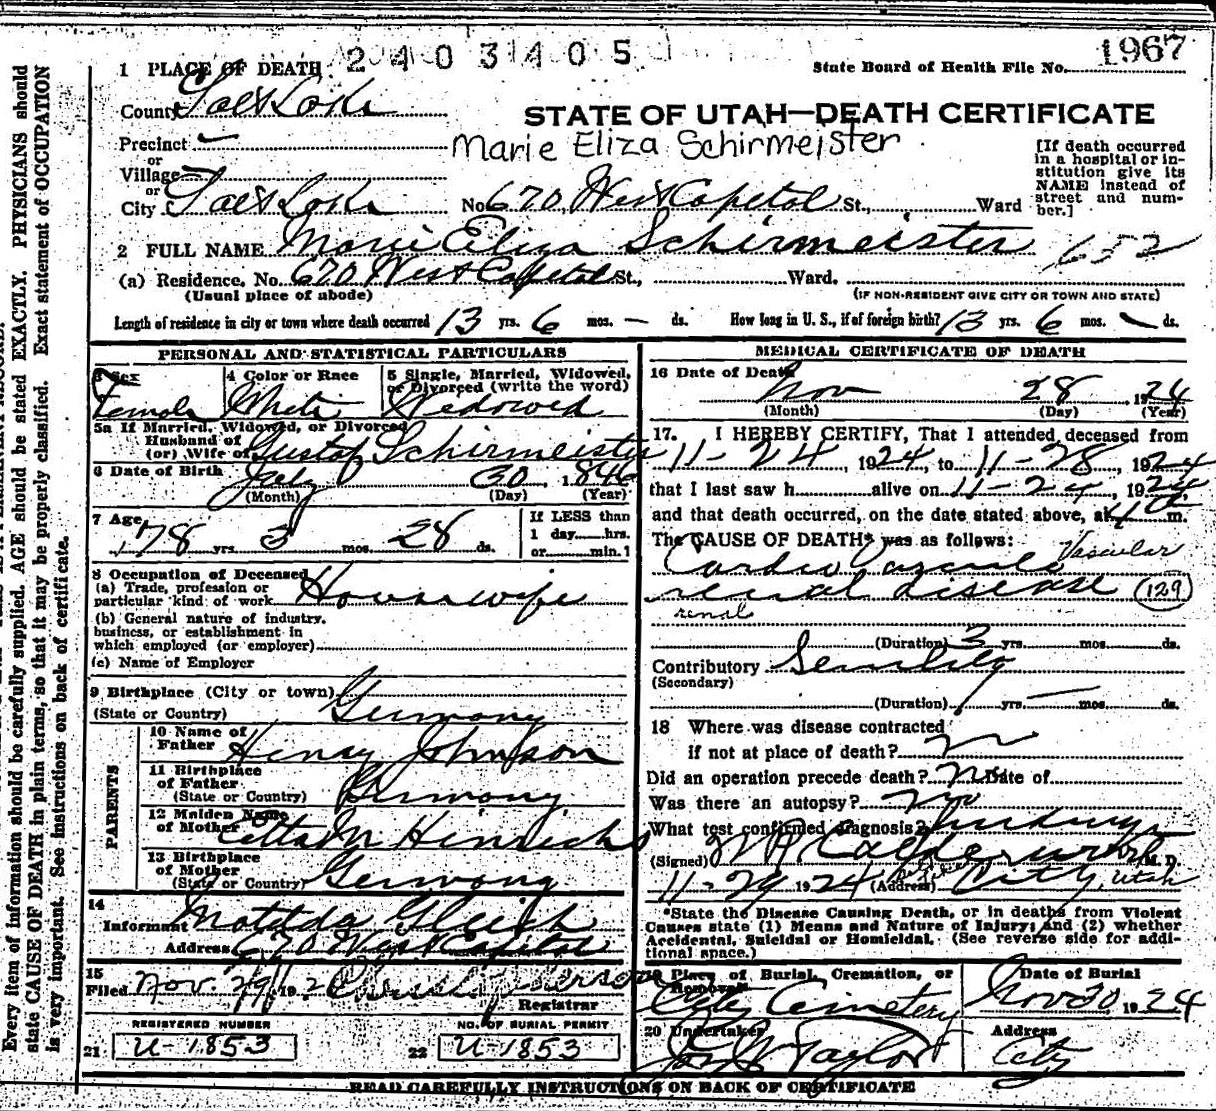 2403405
State Board of Health File No. 1967
1 PLACE OF DEATH
County Salt Lake
STATE OF UTAH—DEATH CERTIFICATE
Precinct —
Marie Eliza Schirmeister
or
Village —
or
City Salt Lake No 670 West Capitol St., Ward
[If death occurred
in a hospital or in-
stitution give its
NAME instead of
street and num-
ber.]
2 FULL NAME Marie Eliza Schirmeister 652
(a) Residence, No. 670 West Capitol St., Ward.
(Usual place of abode) (IF NON-RESIDENT GIVE CITY OR TOWN AND STATE)
Length of residence in city or town where death occurred 13 yrs. 6 mos. — ds. How long in U. S., if of foreign birth? 13 yrs. 6 mos. — ds.
PERSONAL AND STATISTICAL PARTICULARS
3 Sex 4 Color or Race 5 Single, Married, Widowed,
or Divorced (write the word)
Female White Widowed
5a If Married, Widowed, or Divorced
Husband of
(or) Wife of Gustaf Schirmeister
6 Date of Birth July 30, 1846
(Month) (Day) (Year)
7 Age 78 yrs 3 mos. 28 ds.
If LESS than
1 day hrs.
or min.?
8 Occupation of Deceased
(a) Trade, profession or
particular kind of work Housewife
(b) General nature of industry,
business, or establishment in
which employed (or employer)
(c) Name of Employer
9 Birthplace (City or town)
(State or Country) Germany
PARENTS
10 Name of
Father Henry Johnson
11 Birthplace
of Father
(State or Country) Germany
12 Maiden Name
of Mother M Hinrichs
13 Birthplace
of Mother
(State or Country) Germany
14
Informant Matilda Gleish
Address 670 West Capitol
15
Filed Nov. 29 192
Registrar
REGISTERED NUMBER NO. OF BURIAL PERMIT
21 U-1853 22 U-1853
MEDICAL CERTIFICATE OF DEATH
16 Date of Death
Nov 28, 1924
(Month) (Day) (Year)
17. I HEREBY CERTIFY, That I attended deceased from
11-24, 1924, to 11-28, 1924
that I last saw h alive on 11-24, 1924,
and that death occurred, on the date stated above, at 4 a m.
The CAUSE OF DEATH* was as follows:
Vascular
Cardio Vascular
renal disease (129)
renal
(Duration) 3 yrs. mos. ds.
Contributory Senility
(Secondary)
(Duration) yrs. — mos. ds.
18 Where was disease contracted
if not at place of death?
Did an operation precede death? no Date of
Was there an autopsy? no
What test confirmed diagnosis?
(Signed) W R Calderwood M. D.
11-29 1924 (Address) City, Utah
*State the Disease Causing Death, or in deaths from Violent
Causes state (1) Means and Nature of Injury; and (2) whether
Accidental, Suicidal or Homicidal. (See reverse side for addi-
tional space.)
19 Place of Burial, Cremation, or
Removal
City Cemetery
Date of Burial
Nov 30 1924
20 Undertaker
Taylor
Address
City
READ CAREFULLY INSTRUCTIONS ON BACK OF CERTIFICATE
Every item of information should be carefully supplied. AGE should be stated EXACTLY. PHYSICIANS should
state CAUSE OF DEATH in plain terms, so that it may be properly classified. Exact statement of OCCUPATION
is very important. See instructions on back of certificate.